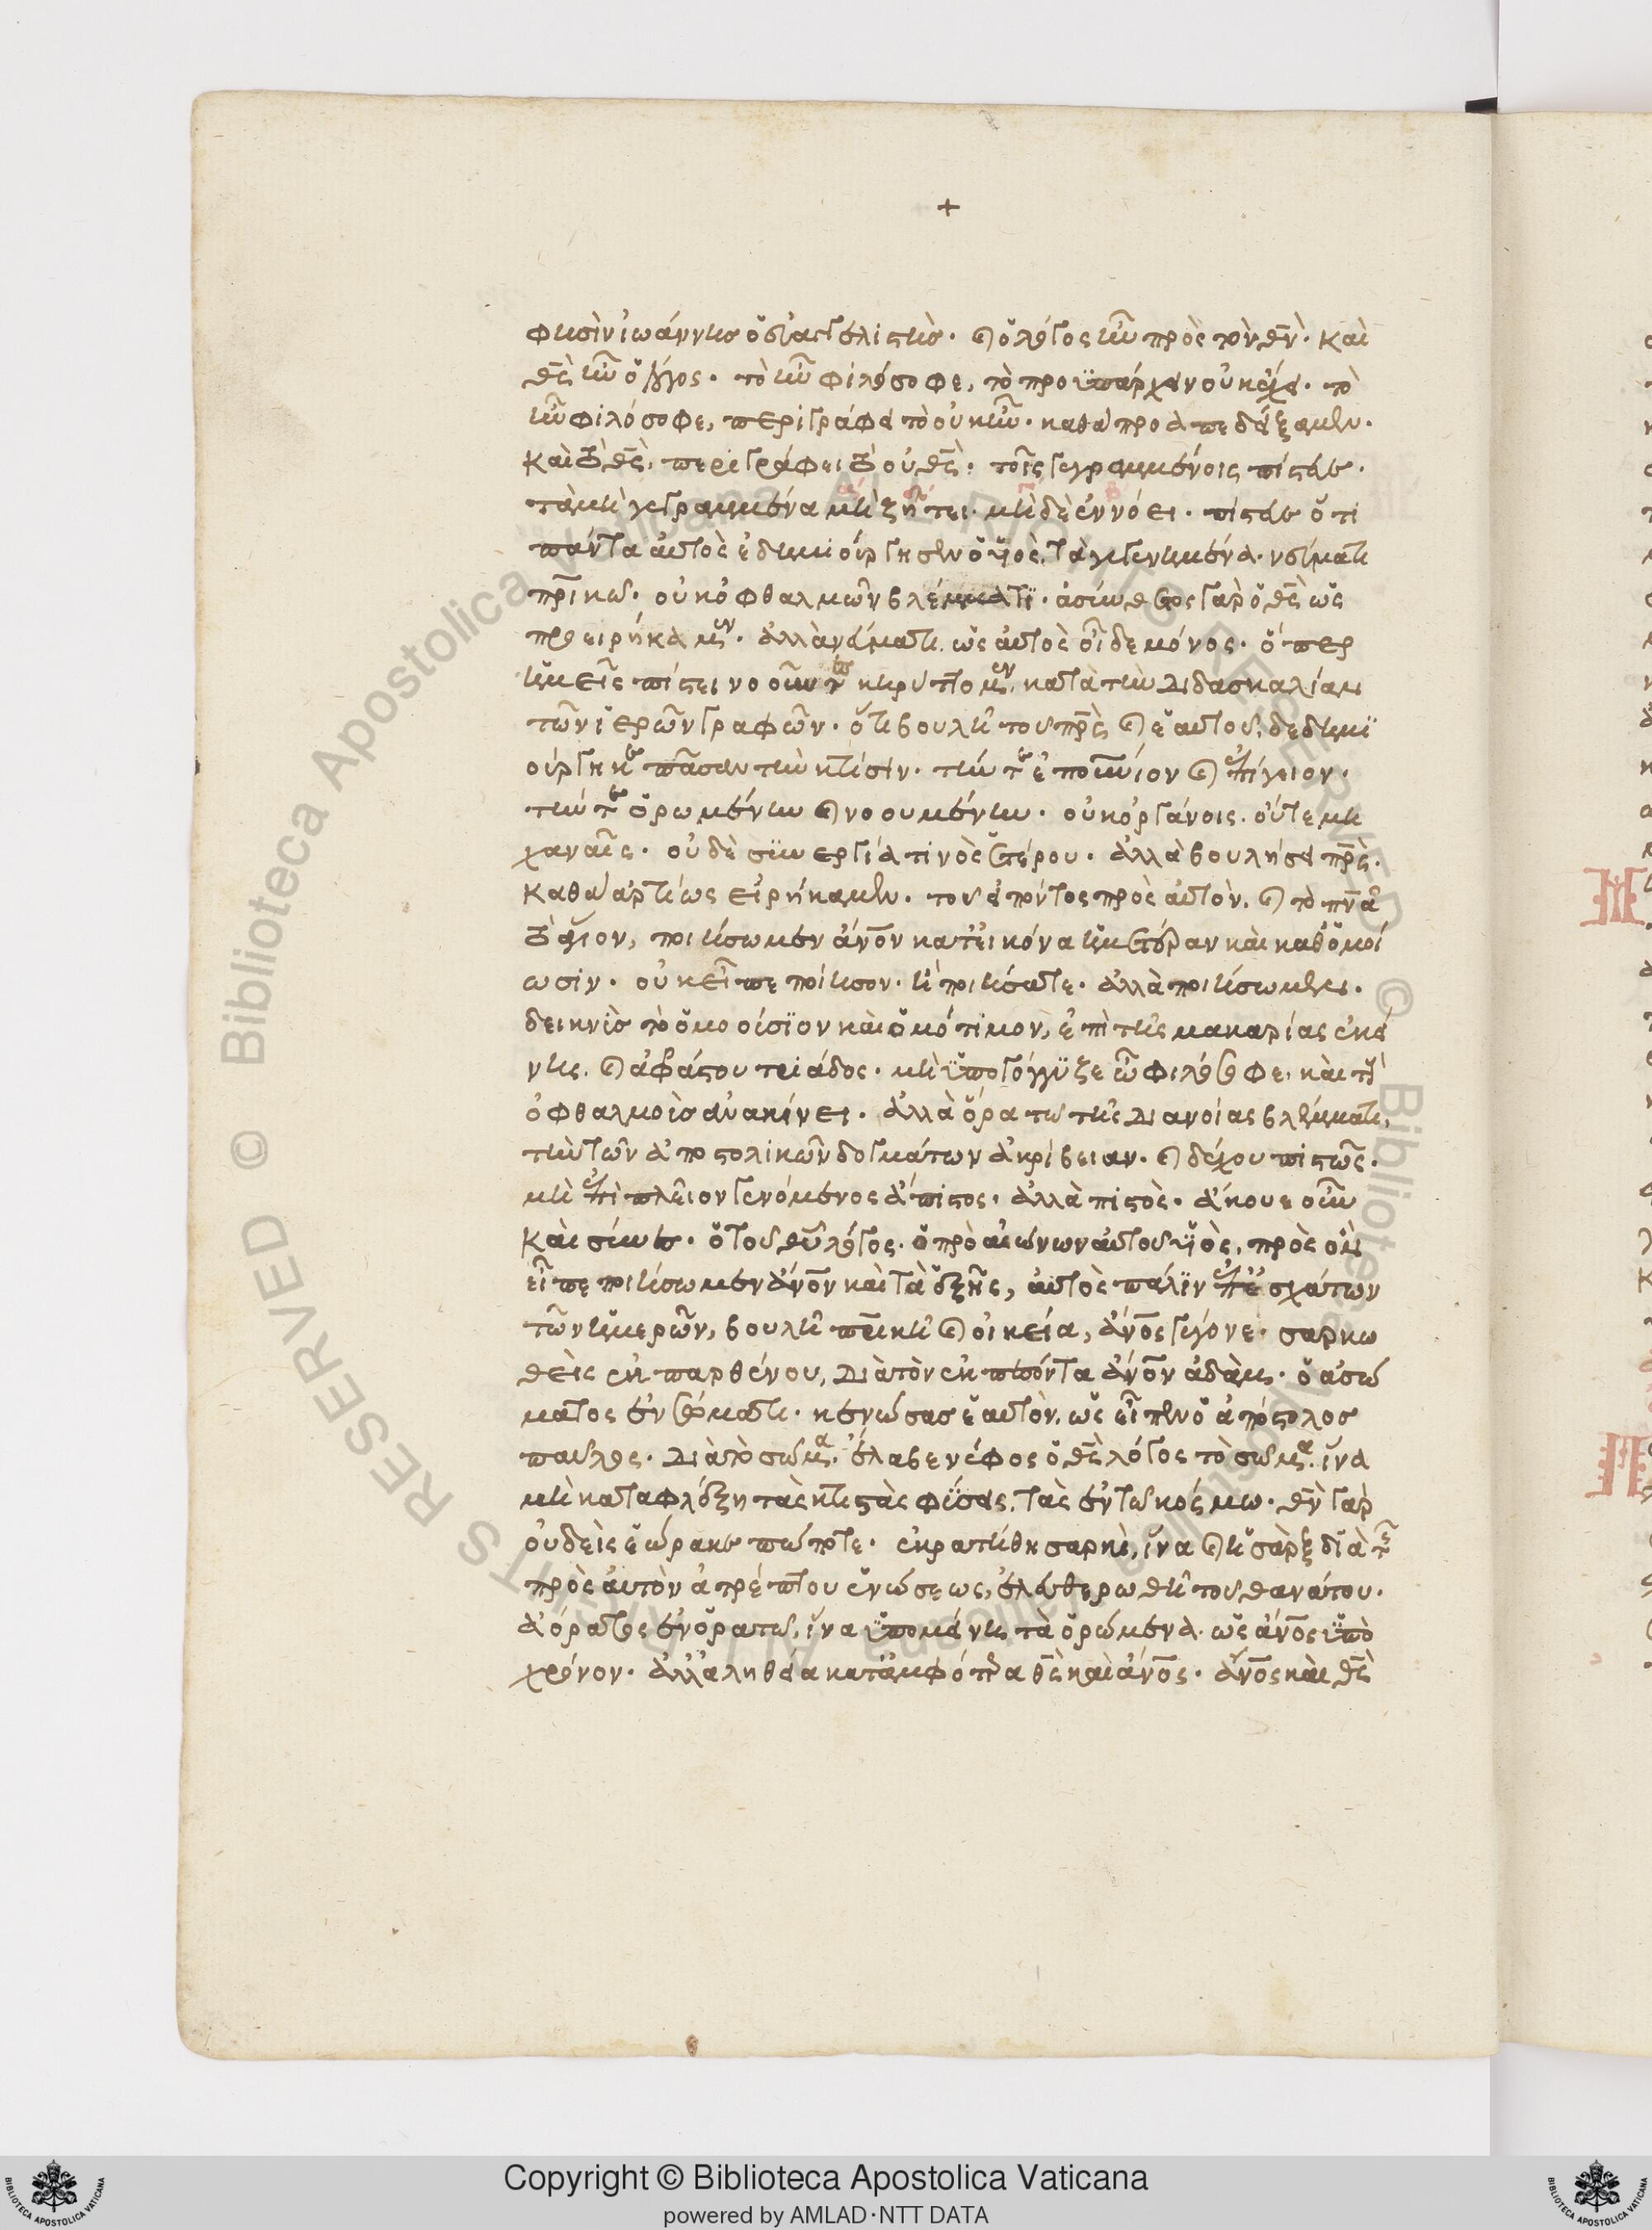 +
φησὶν ἰωάννης ὁ εὐαγγελιστής· καὶ ὁ λόγος ἦν πρὸς τὸν θν̅· καὶ
θς̅ ἦν ὁ λόγος· τὸ ἦν φιλόσοφε, τὸ προϋπάρχειν οὐκ ἔχει· τὸ
ἦν φιλόσοφε, περιγράφει τὸ οὐκ ἦν· καθὰ προαπεδείξαμεν·
καὶ τὸ θς̅, περιγράφει τὸ οὐ θς̅· τοῖς γεγραμμένοις πίστευε·
τὰ μὴ γεγραμμένα μὴ ζήτει· μὴ δὲ ἐννόει· πίστευε ὅτι
πάντα αὐτὸς ἐδημιούργησεν ὁ υἱὸς, τὰ γεγενημένα· νεύματι
πρ̅ικῷ· οὐκ ὀφθαλμῶν βλέμματι· ἀσύνθετος γὰρ ὁ θς̅ ὡς
προειρήκαμεν· ἀλλὰ νεύματι ὡς αὐτὸς οἶδε μόνος· ὅπερ
ἡμεῖς πίστει νοοῦντες κηρύττομεν, κατὰ τὴν διδασκαλίαν
τῶν ἱερῶν γραφῶν· ὅτι βουλῇ τοῦ πρς̅ καὶ ἑαυτοῦ, δεδημι
ούργηκε πᾶσαν τὴν κτίσιν· τήν τε ἐπουράνιον καὶ ἐπίγειον·
τήν τε ὁρωμένην καὶ νοουμένην· οὐκ ὀργάνοις· οὔτε μη
χαναῖς· οὐδὲ συνεργίᾳ τινὸς ἑτέρου· ἀλλὰ βουλήσει πρς̅·
καθὰ ἀρτίως εἰρήκαμεν· τοῦ εἰπόντος πρὸς αὐτὸν, καὶ τὸ πνα̅
τὸ ἅγιον, ποιήσωμεν ἄνο̅ν κατ᾽ εἰκόνα ἡμετέραν καὶ καθ᾽ ὁμοί
ωσιν· οὐκ εἶπε ποίησον· ἢ ποιήσατε· ἀλλὰ ποιήσωμεν·
δεικνὺς τὸ ὁμοούσιον καὶ ὁμότιμον, ἐπὶ τῆς μακαρίας ἐκεί
νης, καὶ ἀφράστου τριάδος· μὴ ὑπογόγγυζε ὦ φιλόσοφε, καὶ τοὺς
ὀφθαλμοὺς ἀνακίνει· ἀλλὰ ὅρα τῷ τῆς διανοίας βλέμματι,
τὴν τῶν ἀποστολικῶν δογμάτων ἀκρίβειαν· καὶ δέχου πιστῶς·
μὴ ἐπὶ πλεῖον γενόμενος ἄπιστος· ἀλλὰ πιστὸς· ἄκουε οὖν
καὶ σύνες· ὁ τοῦ θυ̅ λόγος· ὁ πρὸ αἰώνων αὐτοῦ υἱὸς, πρὸς ὃν
εἶπε ποιήσωμεν ἄνο̅ν καὶ τὰ ἑξῆς, αὐτὸς πάλιν ἐπ᾽ ἐσχάτων
τῶν ἡμερῶν, βουλῇ πρ̅ικῇ καὶ οἰκεία, ἄνο̅ς γέγονε· σαρκω
θεὶς ἐκ παρθένου, διὰ τὸν ἐκπεσόντα ἄνο̅ν ἀδάμ· ὁ ἀσώ
ματος ἐν σώματι· κενώσας ἑαυτὸν, ὡς εἶπεν ὁ ἀπόστολος
παῦλος· διὰ τὸ σῶμα· ἔλαβε νέφος ὁ θς̅ λόγος τὸ σῶμα, ἵνα
μὴ καταφλέξῃ τὰς κτιστὰς φύσεις, τὰς ἐν τῷ κόσμω· θν̅ γὰρ
οὐδεὶς ἑώρακε πώποτε· ἐκρατήθη σαρκὶ, ἵνα καὶ ἡ σὰρξ διὰ τῆς
πρὸς αὐτὸν ἀτρέπτου ἑνώσεως, ἐλευθερωθῇ τοῦ θανάτου·
ἀόρατος ἐν ὁρατῷ, ἵνα ὑπομείνῃ τὰ ὁρώμενα· ὡς ἄνο̅ς ὑπὸ
χρόνον· ἀλλ᾽ ἀληθεία κατ᾽ ἀμφότερα θς̅ καὶ ἄνο̅ς· ἄνο̅ς καὶ θς̅
Copyright © Biblioteca Apostolica Vaticana
powered by AMLAD·NTT DATA